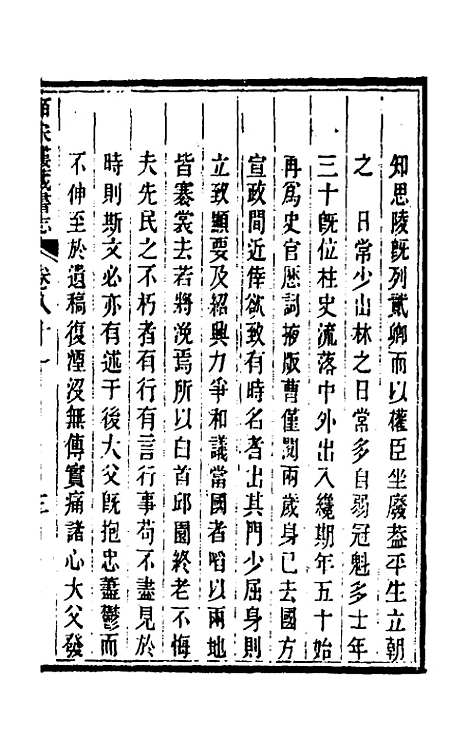 知思陵旣列貳卿而以權臣坐廢葢平生立朝
之　日常少山林之日常多自弱冠魁多士年
三十旣位柱史流落中外出入纔期年五十始
再爲史官歷詞掖版曹僅閱兩歲身已去國方
宣政間近倖欲致有時名者出其門少屈身則
立致顯要及紹興力爭和議當國者啗以兩地
皆褰裳去若將浼焉所以白首邱園終老不悔
夫先民之不朽者有行有言行事苟不盡見於
時則斯文必亦有述于後大父旣抱忠藎鬱而
不伸至於遺稿復湮沒無傳實痛諸心大父發
皕宋樓藏書志　卷八十一　三